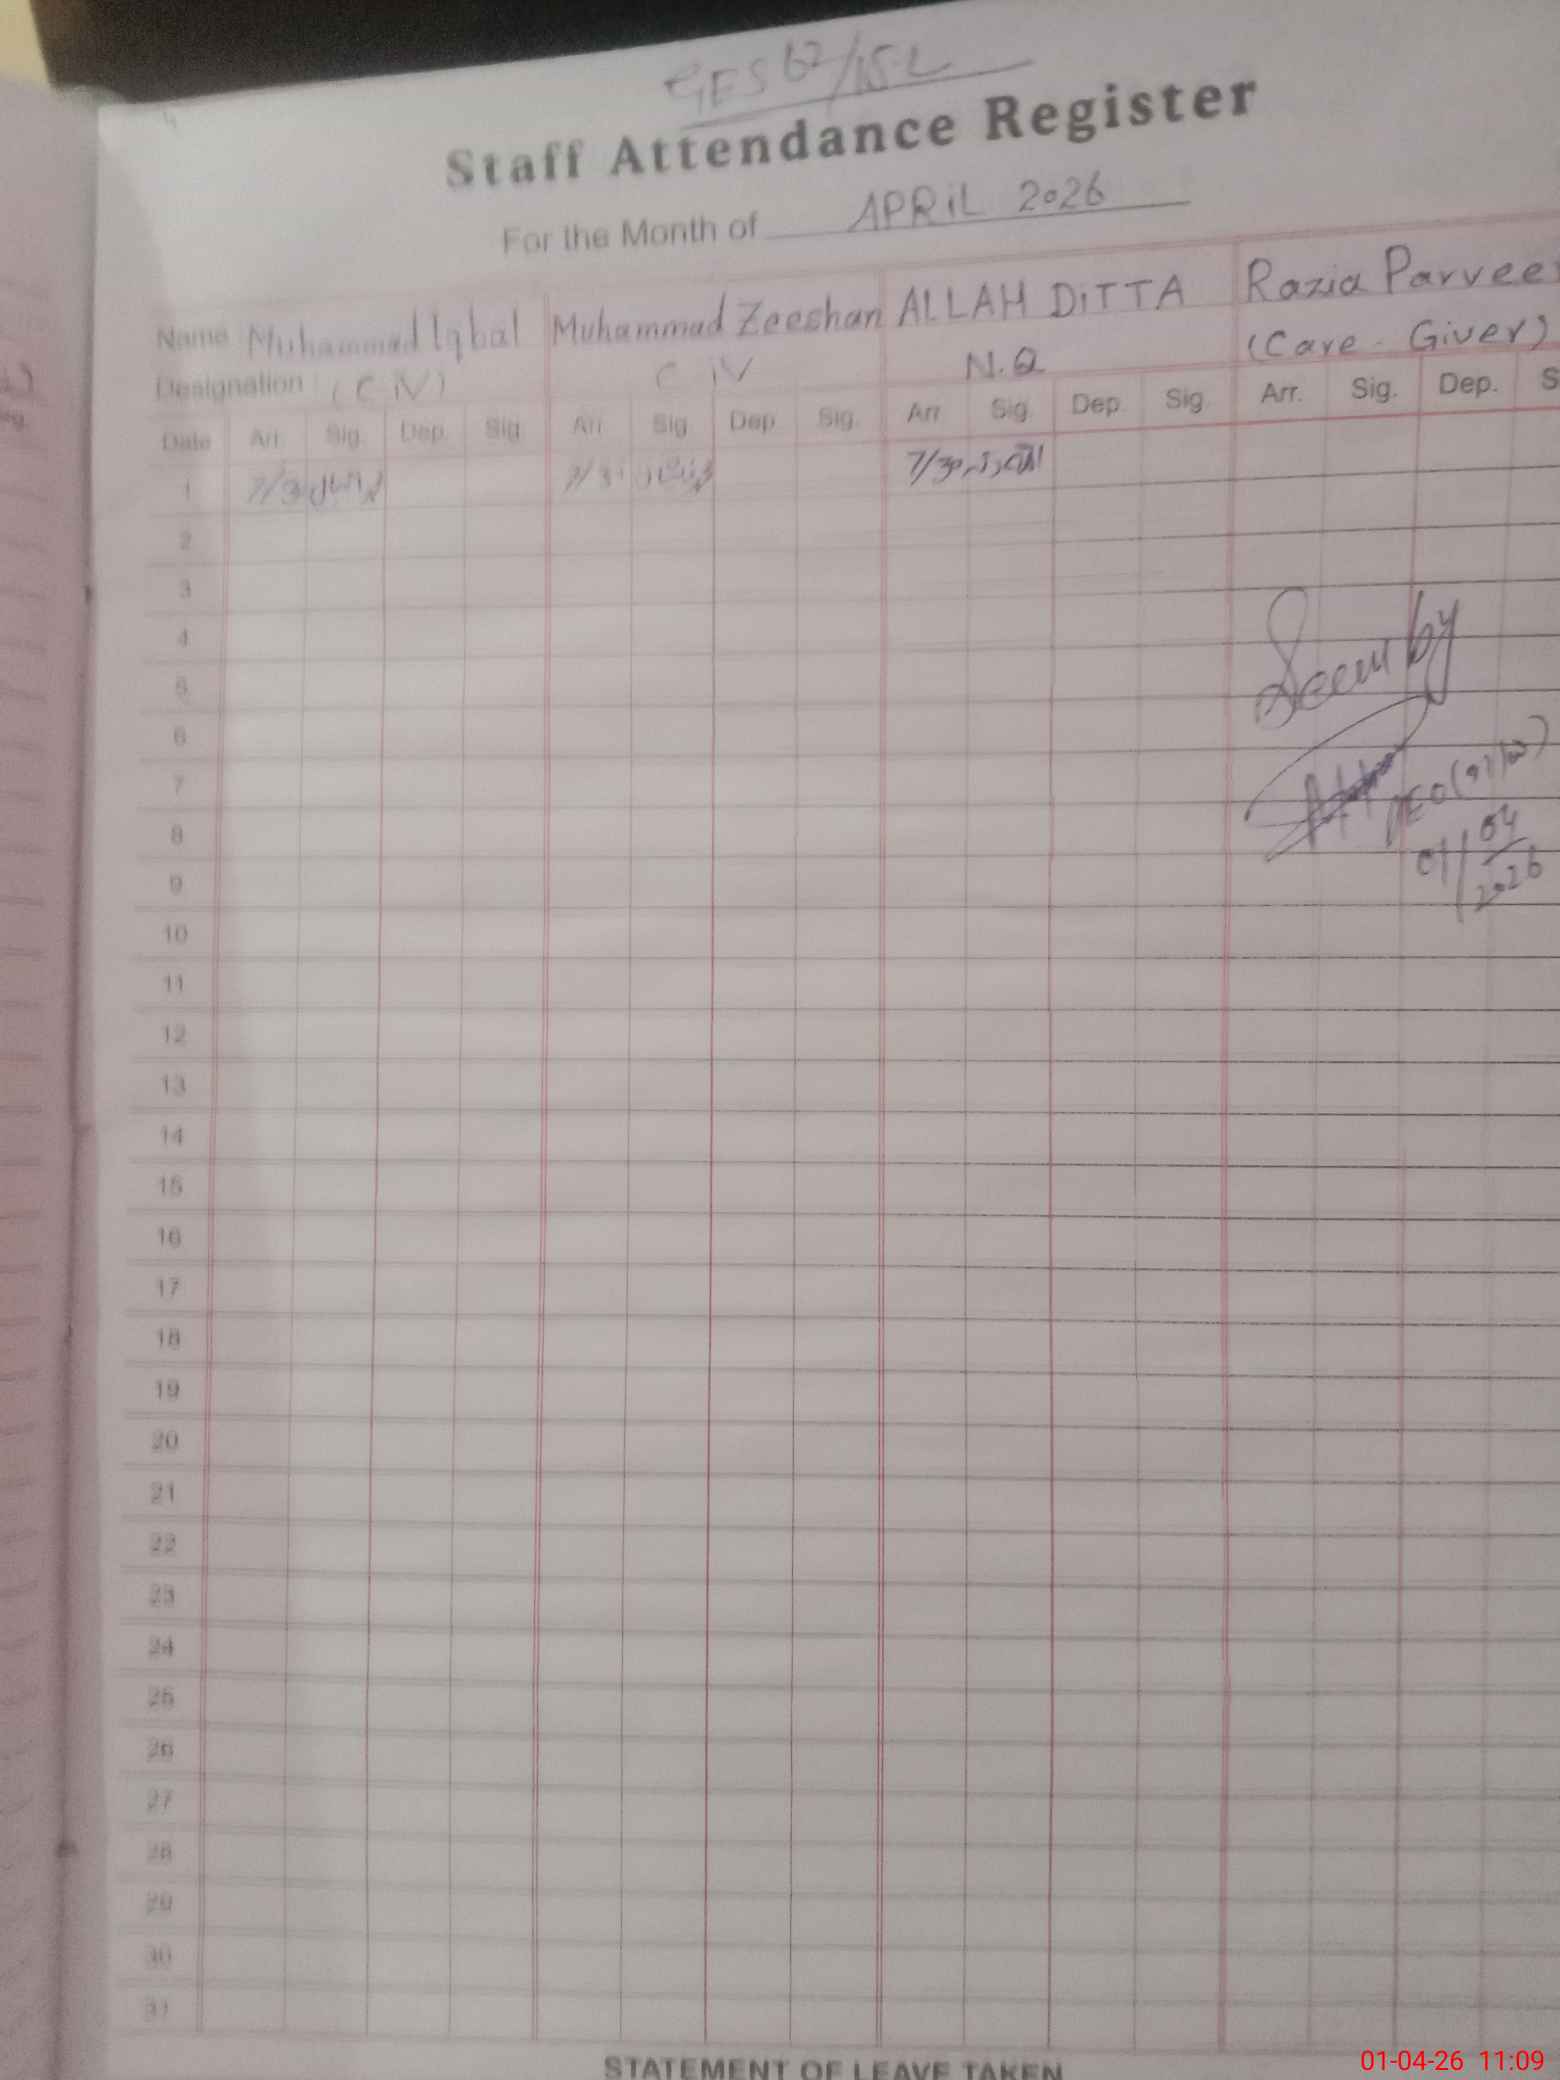 GES 62/15-L
Staff Attendance Register
For the Month of APRIL 2026
Name Muhammad Iqbal Muhammad Zeeshan ALLAH DITTA Razia Parveen
Designation (C iV) C iV N.Q (Care-Giver)
Date Arr. Sig. Dep. Sig. Arr. Sig. Dep. Sig. Arr. Sig. Dep. Sig. Arr. Sig. Dep. S
1 7/30 7/30 7/30 اللہ دتہ
2
3
4
Seen by
5
6
7
8
01/04/2026
9
10
11
12
13
14
15
16
17
18
19
20
21
22
23
24
25
26
27
28
29
30
31
STATEMENT OF LEAVE TAKEN
01-04-26 11:09